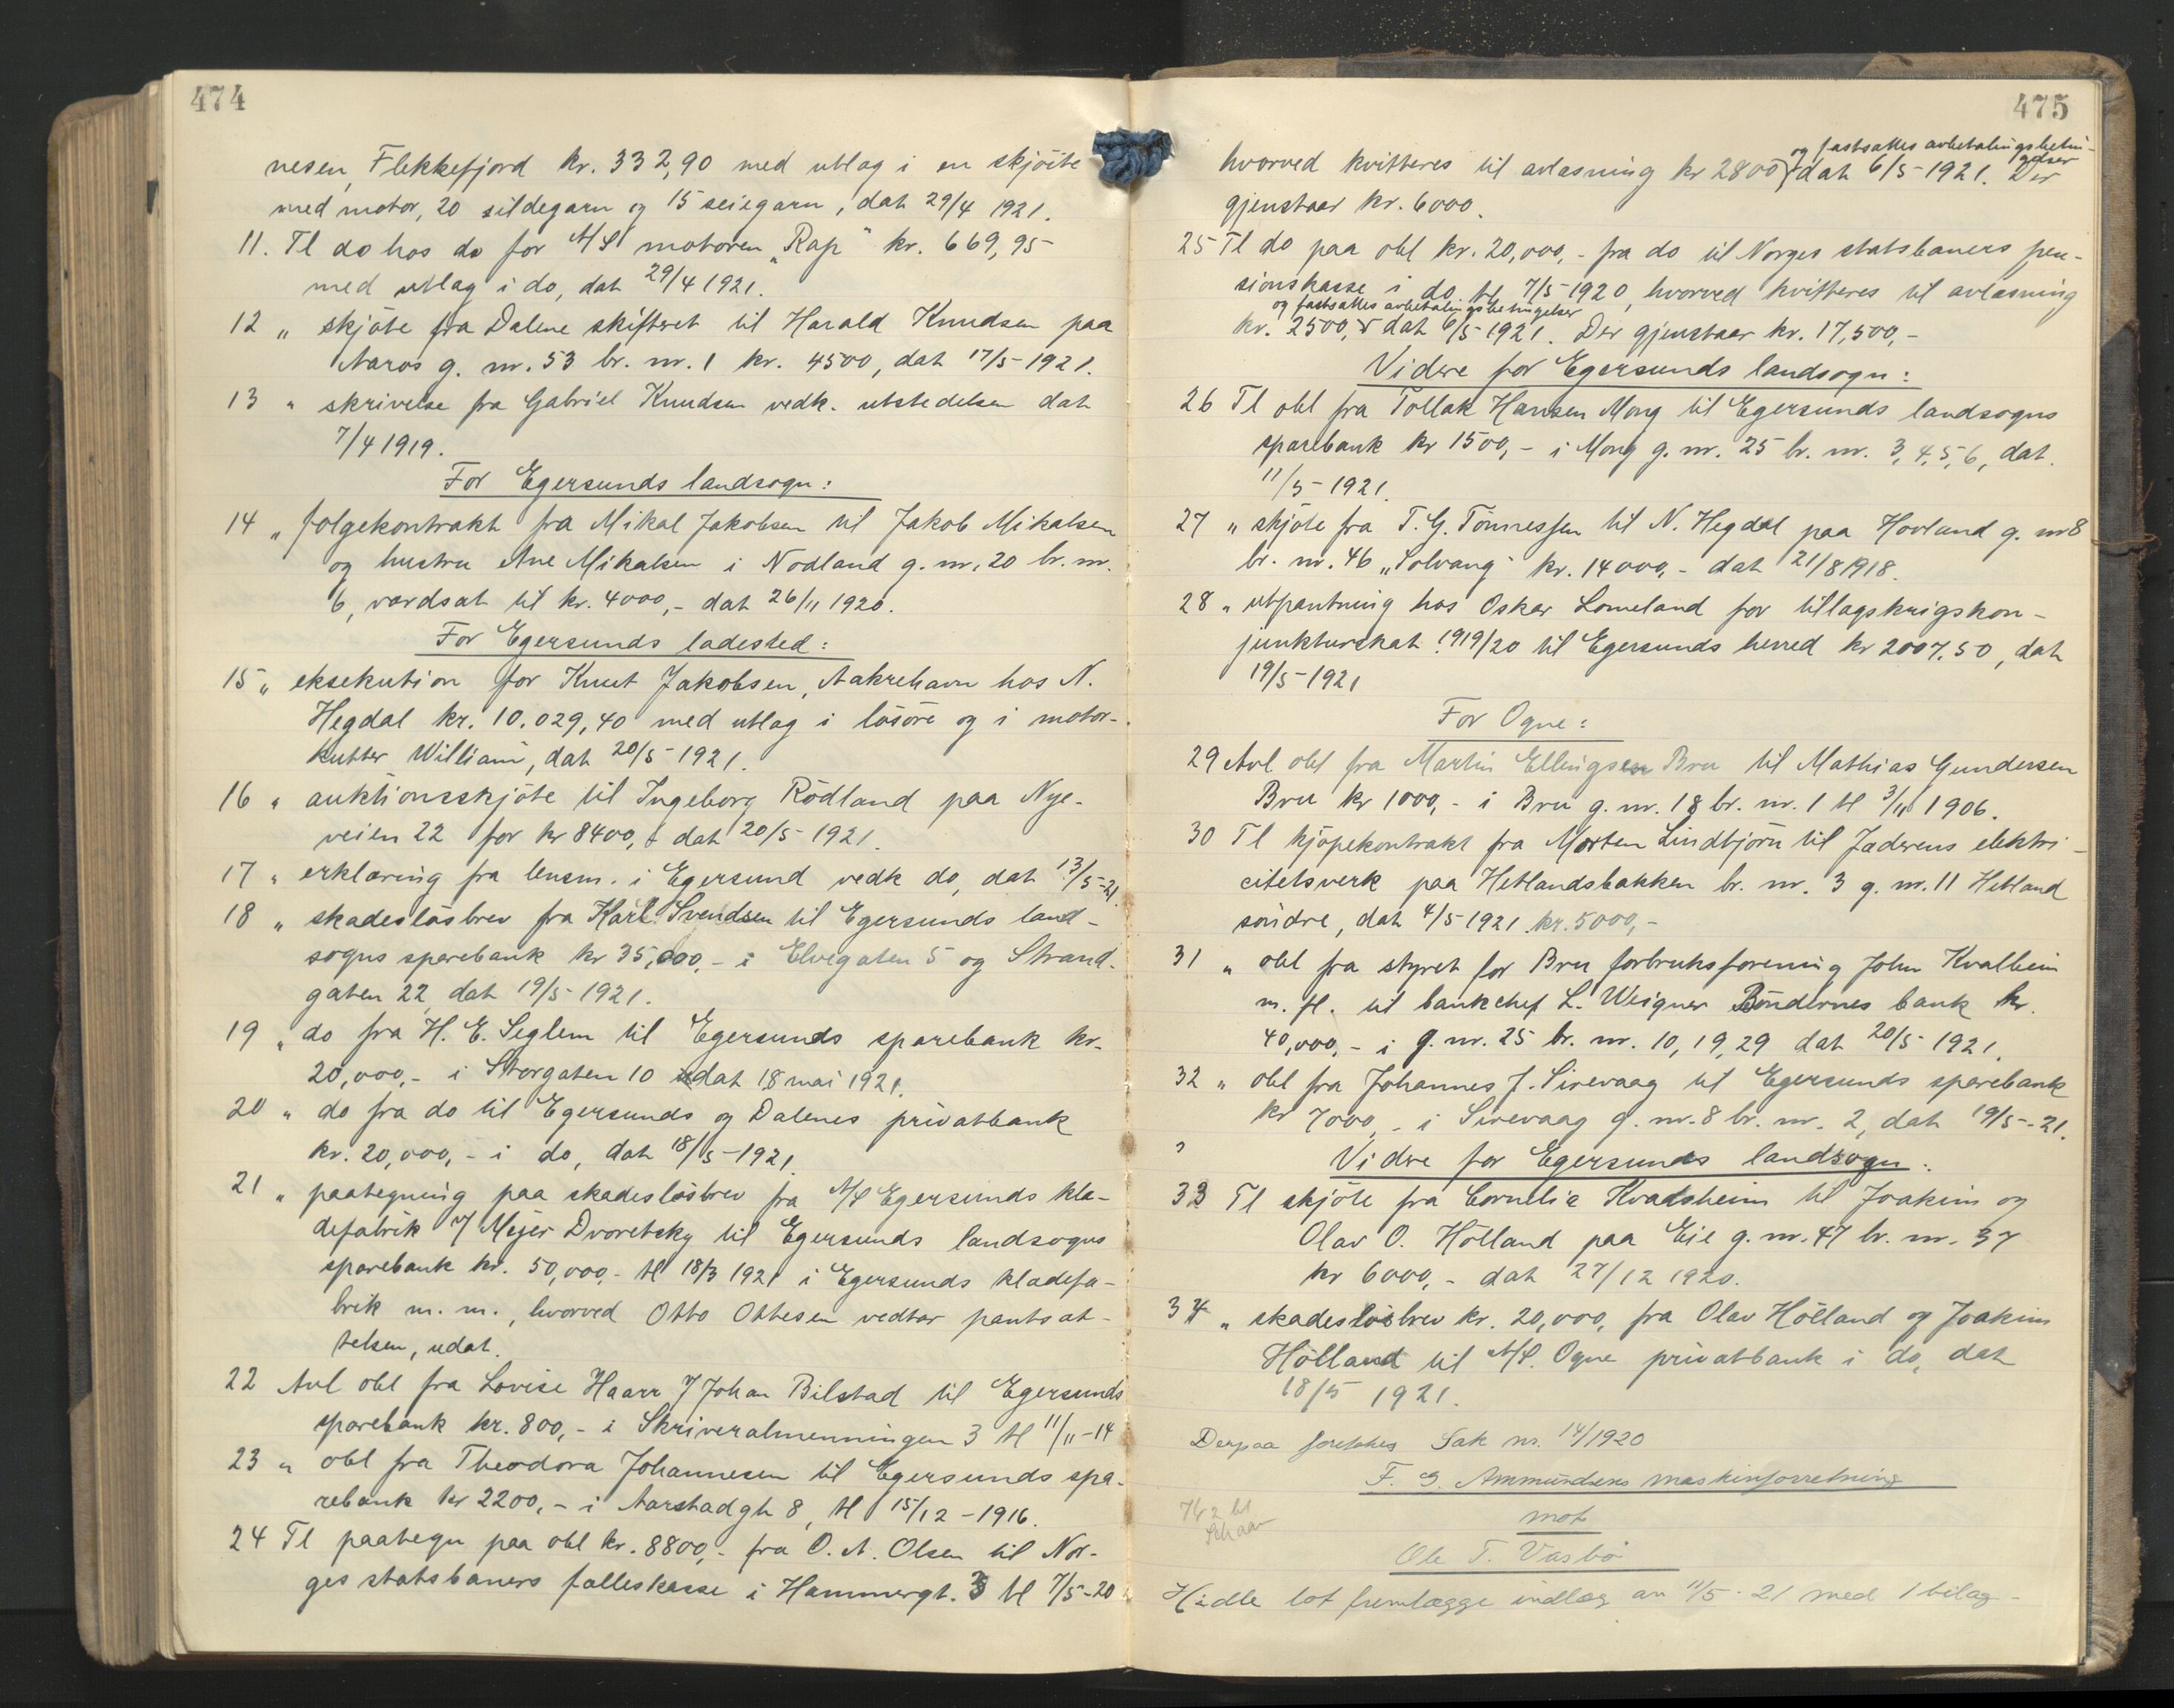 474
nesen, Flekkefjord kr. 332,90 med utlag i en skjöite
med motor, 20 sildegarn og 15 seiegarn, dat 29/4 1921.
11. Tl do hos do for A/S motoren "Rap" kr. 669,95
med utlag i do, dat 29/4 1921.
12 " skjöte fra Dalene skifteret til Harald Knudsen paa
Aaros g. nr. 53 br. nr. 1 kr. 4500, dat 17/5-1921.
13 " skrivelse fra Gabriel Knudsen vedk. utstedelsen dat
7/4 1919.
For Egersunds landsogn:
14 " følgekontrakt fra Mikal Jakobsen til Jakob Mikalsen
og hustru Ane Mikalsen i Nodland g. nr. 20 br. nr.
6, værdsat til kr. 4000,- dat 26/11 1920.
For Egersunds ladested:
15 " eksekution for Knut Jakobsen, Aakrehavn hos N.
Hegdal kr. 10.029,40 med utlag i lösöre og i motor-
kutter William, dat 20/5-1921.
16 " auktionsskjöte til Ingeborg Rödland paa Nye-
veien 22 for kr 8400,- dat 20/5-1921.
17 " erklæring fra lensm. i Egersund vedk do, dat 13/5-21.
18 " skadeslösbrev fra Karl Svendsen til Egersunds land-
sogns sparebank kr 35,000,- i Elvegaten 5 og Strand-
gaten 22, dat 19/5-1921.
19 " do fra H. E. Seglem til Egersunds sparebank kr.
20,000,- i Storgaten 10 dat 18 mai 1921.
20 " do fra do til Egersunds og Dalenes privatbank
kr. 20,000,- i do, dat 18/5-1921.
21 " paategning paa skadeslösbrev fra A/S Egersunds klæ-
defabrik v/ Mejer Dvoretsky til Egersunds landsogns
sparebank kr. 50,000,- tl 18/3 1921 i Egersunds klædefa-
brik m. m., hvorved Otto Ottesen vedtar pantsæt-
telsen, udat.
22 Avl obl fra Lovise Haarr v/ Johan Bilstad til Egersunds
sparebank kr. 800,- i Skriveralmenningen 3 tl 11/11-14
23 " obl fra Theodora Johannesen til Egersunds spa-
rebank kr 2200,- i Aarstadgt 8, tl 15/12-1916.
24 Tl paategn paa obl kr. 8800,- fra O. A. Olsen til Nor-
ges statsbaners fælleskasse i Hammergt. 3 tl 7/5-20
475
og fastsættes avbetalingsbetin-
gelser
hvorved kvitteres til avlæsning kr 2800 dat 6/5-1921. Der
gjenstaar kr. 6000.
25 Tl do paa obl kr. 20,000,- fra do til Norges statsbaners pen-
sionskasse i do tl 7/5-1920, hvorved kvitteres til avlæsning
og fastsættes avbetalingsbetingelser
kr. 2500,- dat 6/5-1921. Der gjenstaar kr. 17,500,-
Videre for Egersunds landsogn:
26 Tl obl fra Tollak Hansen Mong til Egersunds landsogns
sparebank kr 1500,- i Mong g. nr. 25 br. nr. 3, 4, 5, 6, dat.
11/5-1921.
27 " skjöte fra T. G. Tönnessen til N. Hegdal paa Hovland g. nr 8
br. nr. 46 "Solvang" kr. 14000,- dat 21/8 1918.
28 " utpantning hos Oskar Lomeland for tillagskrigskon-
junkturskat 1919/20 til Egersunds herred kr 2007.50, dat
19/5-1921
For Ogne:
29 Avl obl fra Martin Ellingsen Bru til Mathias Gundersen
Bru kr 1000,- i Bru g. nr. 18 br. nr. 1 tl 3/11 1906.
30 Tl kjöpekontrakt fra Morten Lindbjörn til Jæderens elektri-
citetsverk paa Hetlandsbakken br. nr. 3 g. nr. 11 Hetland
söndre, dat 4/5-1921. kr. 5000,-
31 " obl fra styret for Bru forbruksforening John Kvalheim
m. fl. til bankchef L. Weigner Böndernes bank kr.
40,000,- i g. nr. 25 br. nr. 10, 19, 29 dat 20/5-1921.
32 " obl fra Johannes J. Sirevaag til Egersunds sparebank
kr 7000,- i Sirevaag g. nr. 8 br. nr. 2, dat 19/5-21.
Videre for Egersunds landsogn:
33 Tl skjöte fra Cornelia Kvadsheim til Joakim og
Olav O. Hölland paa Eie g. nr. 47 br. nr. 37
kr 6000,- dat 27/12 1920.
34 " skadeslösbrev kr. 20,000, fra Olav Hölland og Joakim
Hölland til A/S. Ogne privatbank i do, dat
18/5 1921.
Derpaa foretokes Sak nr. 14/1920
F. G. Ammundsens maskinforretning
mot
Ole T. Vasbö
Hidle lot fremlægge indlæg av 11/5-21 med 1 bilag-